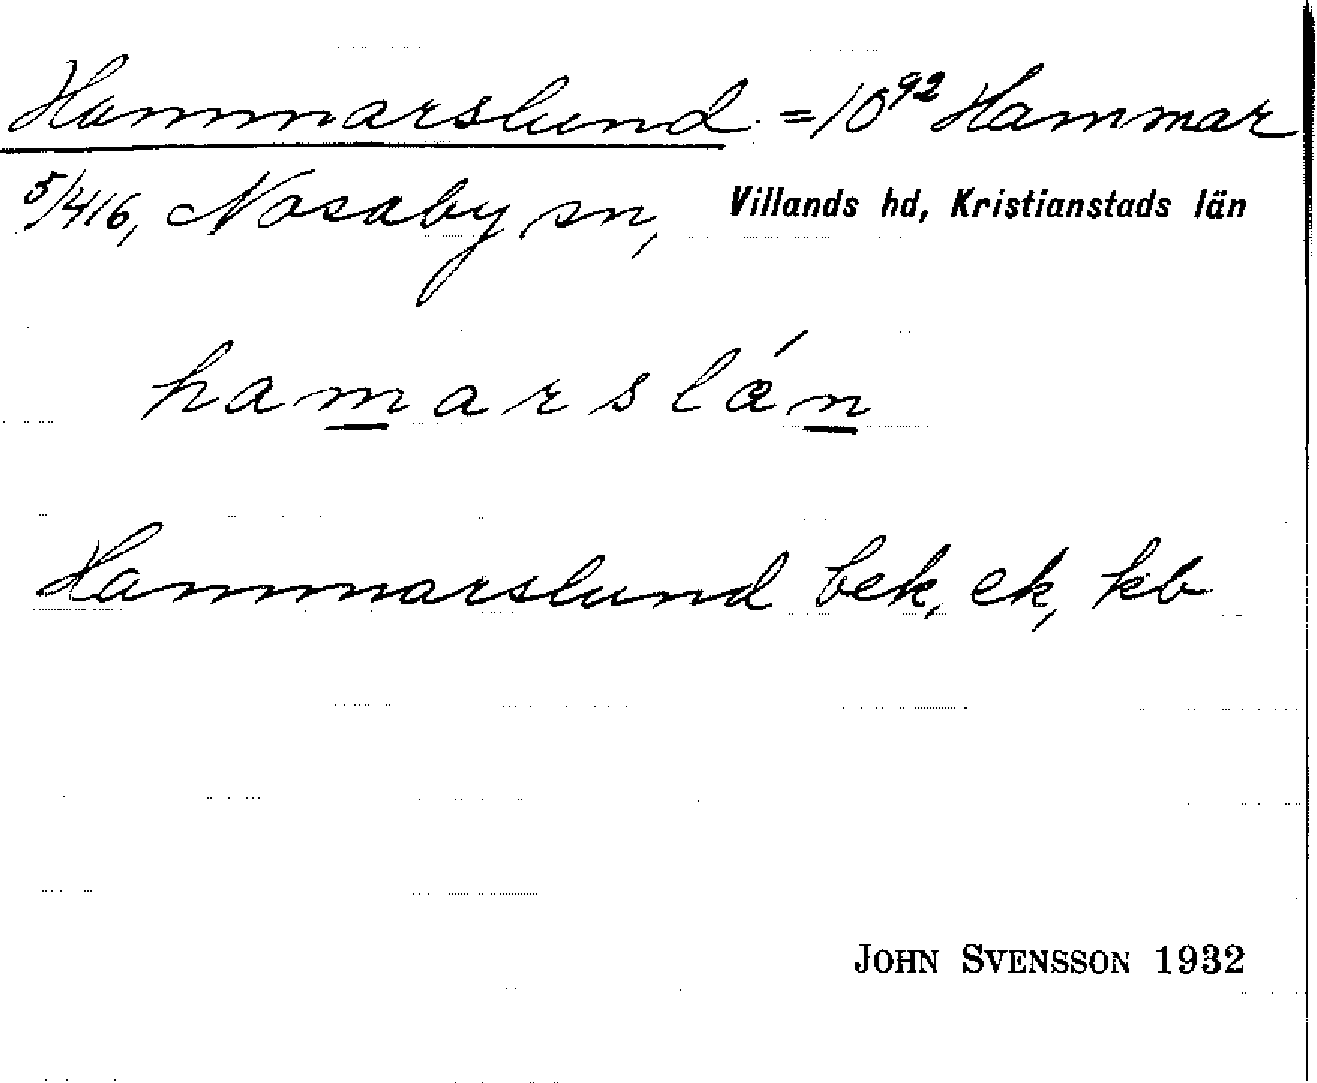 Hammarslund = 10⁹² Hammar
5/416, Nosaby sn, Villands hd, Kristianstads län
hamarslǽn
Hammarslund bek, ek, kb
JOHN SVENSSON 1932